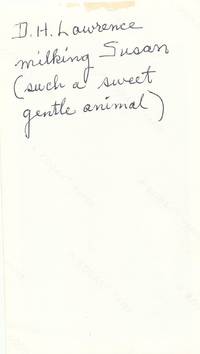 D.H. Lawrence
milking Susan
(such a sweet
gentle animal)